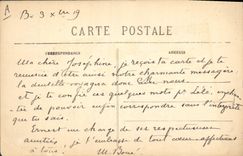 B. 3 Xbre 19
CARTE POSTALE
CORRESPONDANCE ADRESSE
Ma chère Joséphine, je reçois ta carte et je te
remercie d'être aussi notre charmante messagère
la dentelle gagnera donc nous
et je te confie ces quelques mots pr Lalé,
de pouvoir enfin correspondre sans l'interprète
que tu sais.
Ernest me charge de ses respectueuses
amitiés, je t'embrasse de tout cœur affection
à tous,
M. Boué